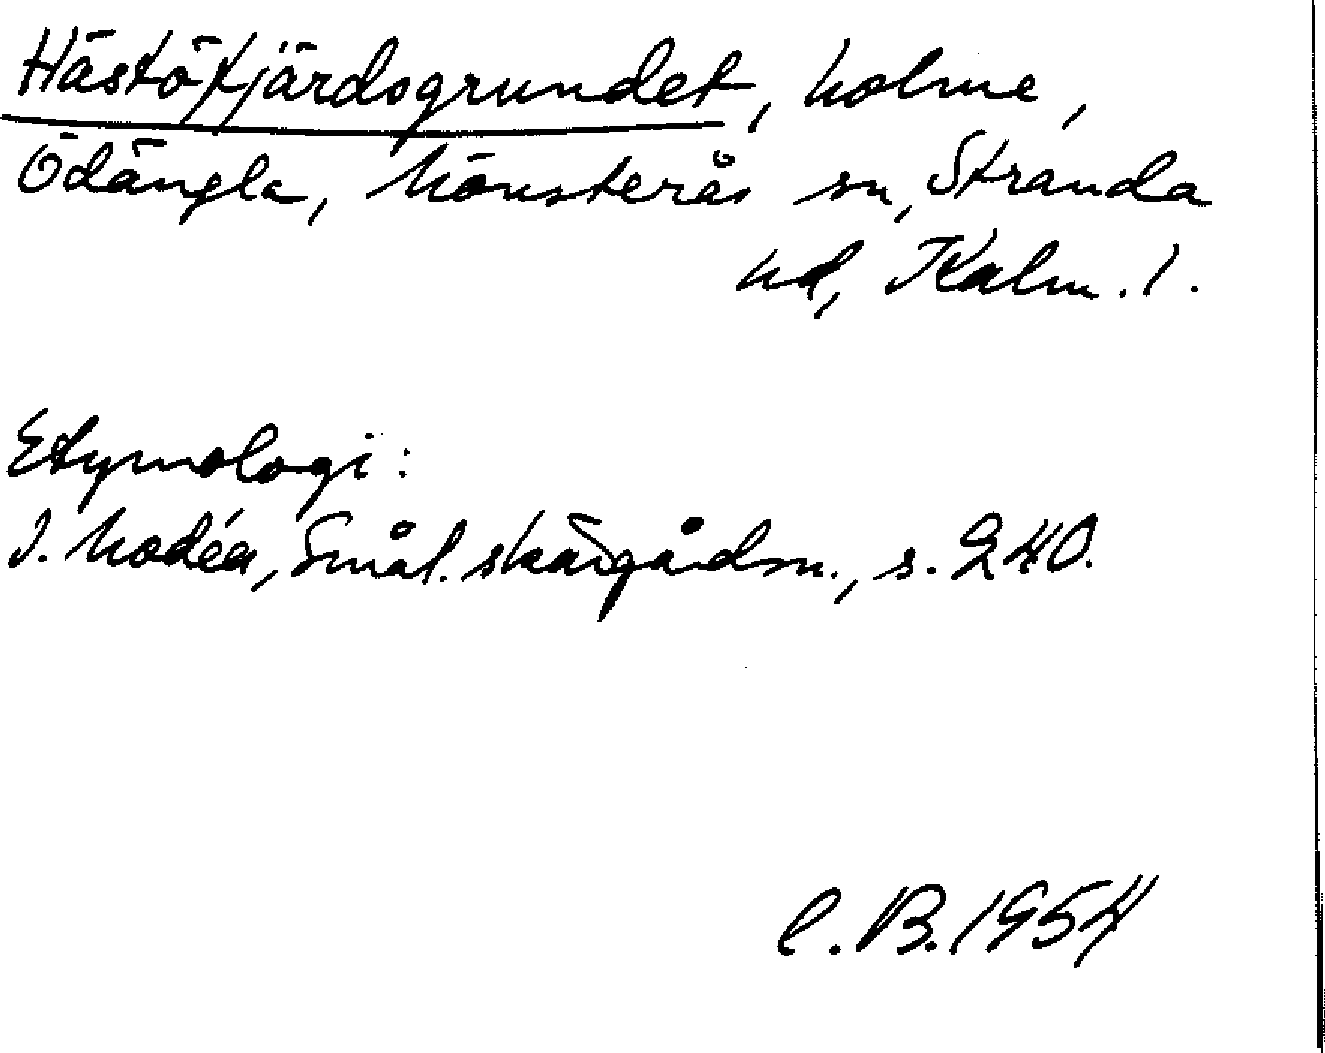 Hästöfjärdsgrundet, holme,
Ödängla, Mönsterås sn, Stranda
hd, Kalm. l.
Etymologi:
I. Modéer, Smål. skärgårdsn., s. 240.
C. B. 1954